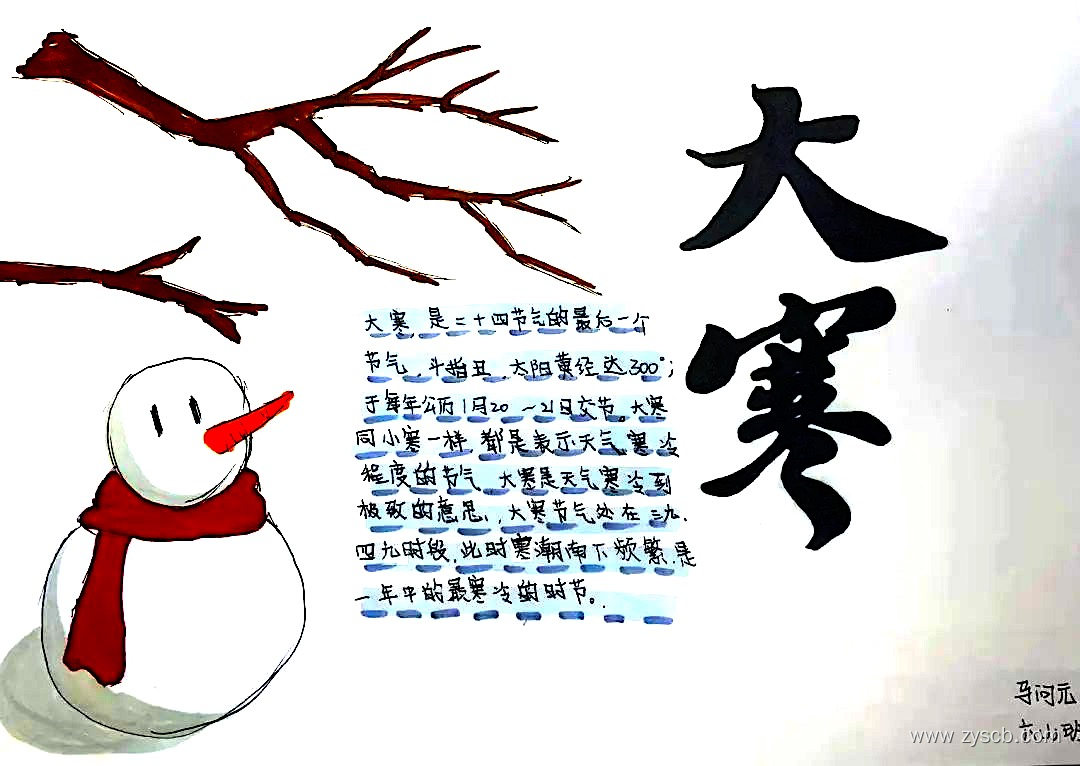 大寒
大寒，是二十四节气的最后一个
节气，斗指丑，太阳黄经达300°；
于每年公历1月20～21日交节。大寒
同小寒一样，都是表示天气寒冷
程度的节气，大寒是天气寒冷到
极致的意思，大寒节气处在三九、
四九时段，此时寒潮南下频繁，是
一年中的最寒冷的时节。
马问元
www.zyscb.com